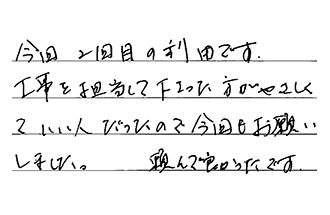 今回2回目の利用です.
工事を担当して下さった方がやさしく
ていい人だったので今回もお願い
しました。 頼んで良かったです.